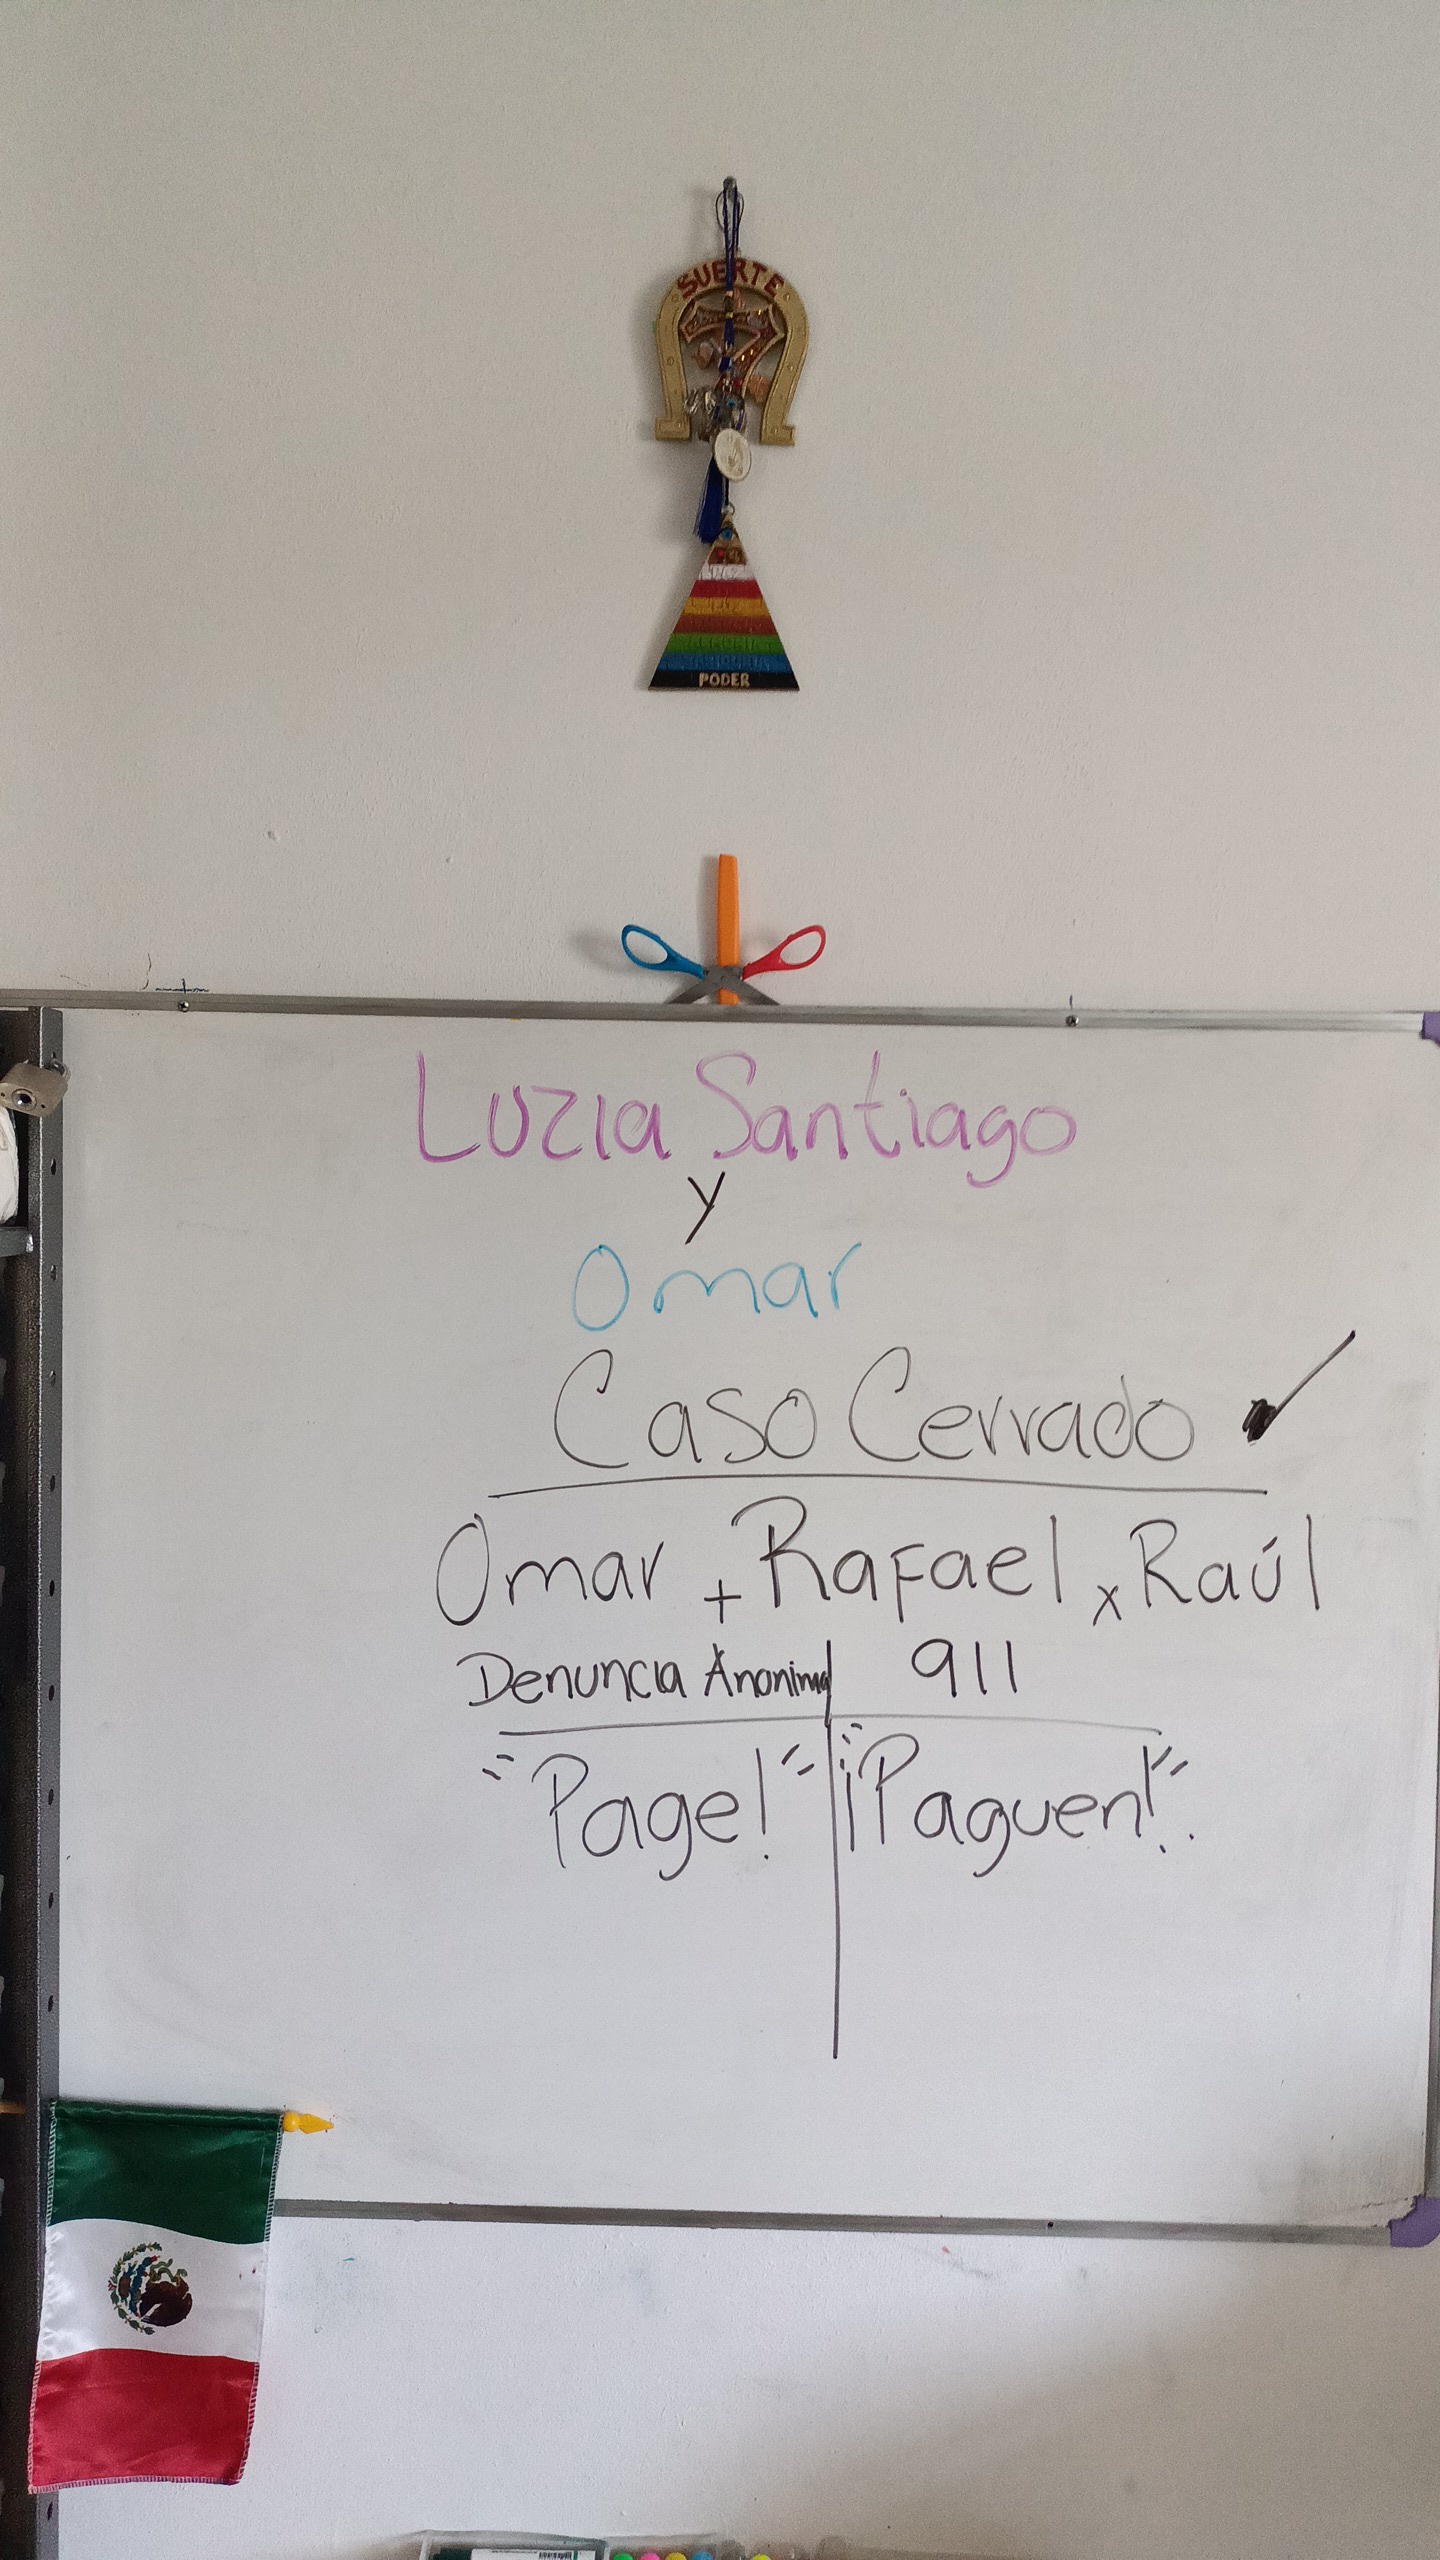 SUERTE
7
PODER
Luzia Santiago
y
Omar
Caso Cerrado ✓
Omar + Rafael x Raúl
Denuncia Anonima 911
"Page!" "¡Paguen!".